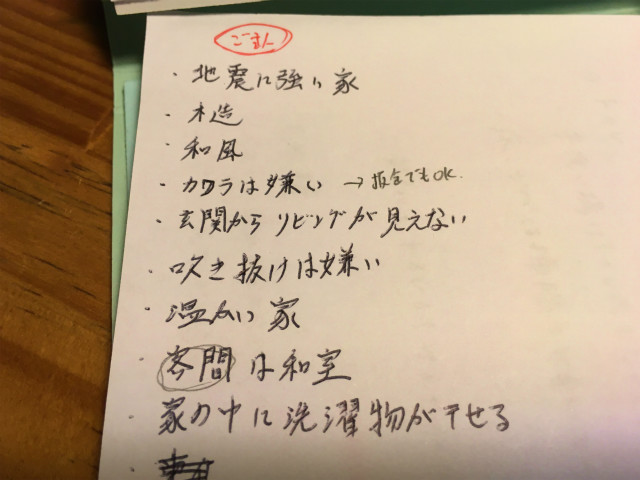 ・地震に強い家
・木造
・和風
・カワラは嫌い → 板金でもOK.
・玄関からリビングが見えない
・吹き抜けは嫌い
・温かい家
・客間は和室
・家の中に洗濯物が干せる